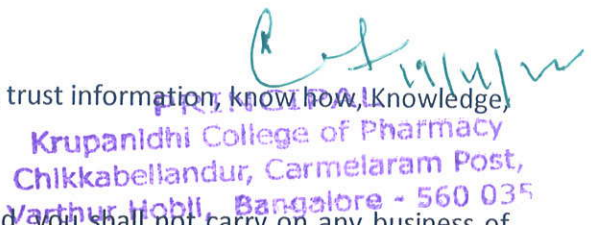 19/11/22
trust information, know how, Knowledge,
PRINCIPAL
Krupanidhi College of Pharmacy
Chikkabellandur, Carmelaram Post,
Varthur Hobli, Bangalore - 560 035
you shall not carry on any business of